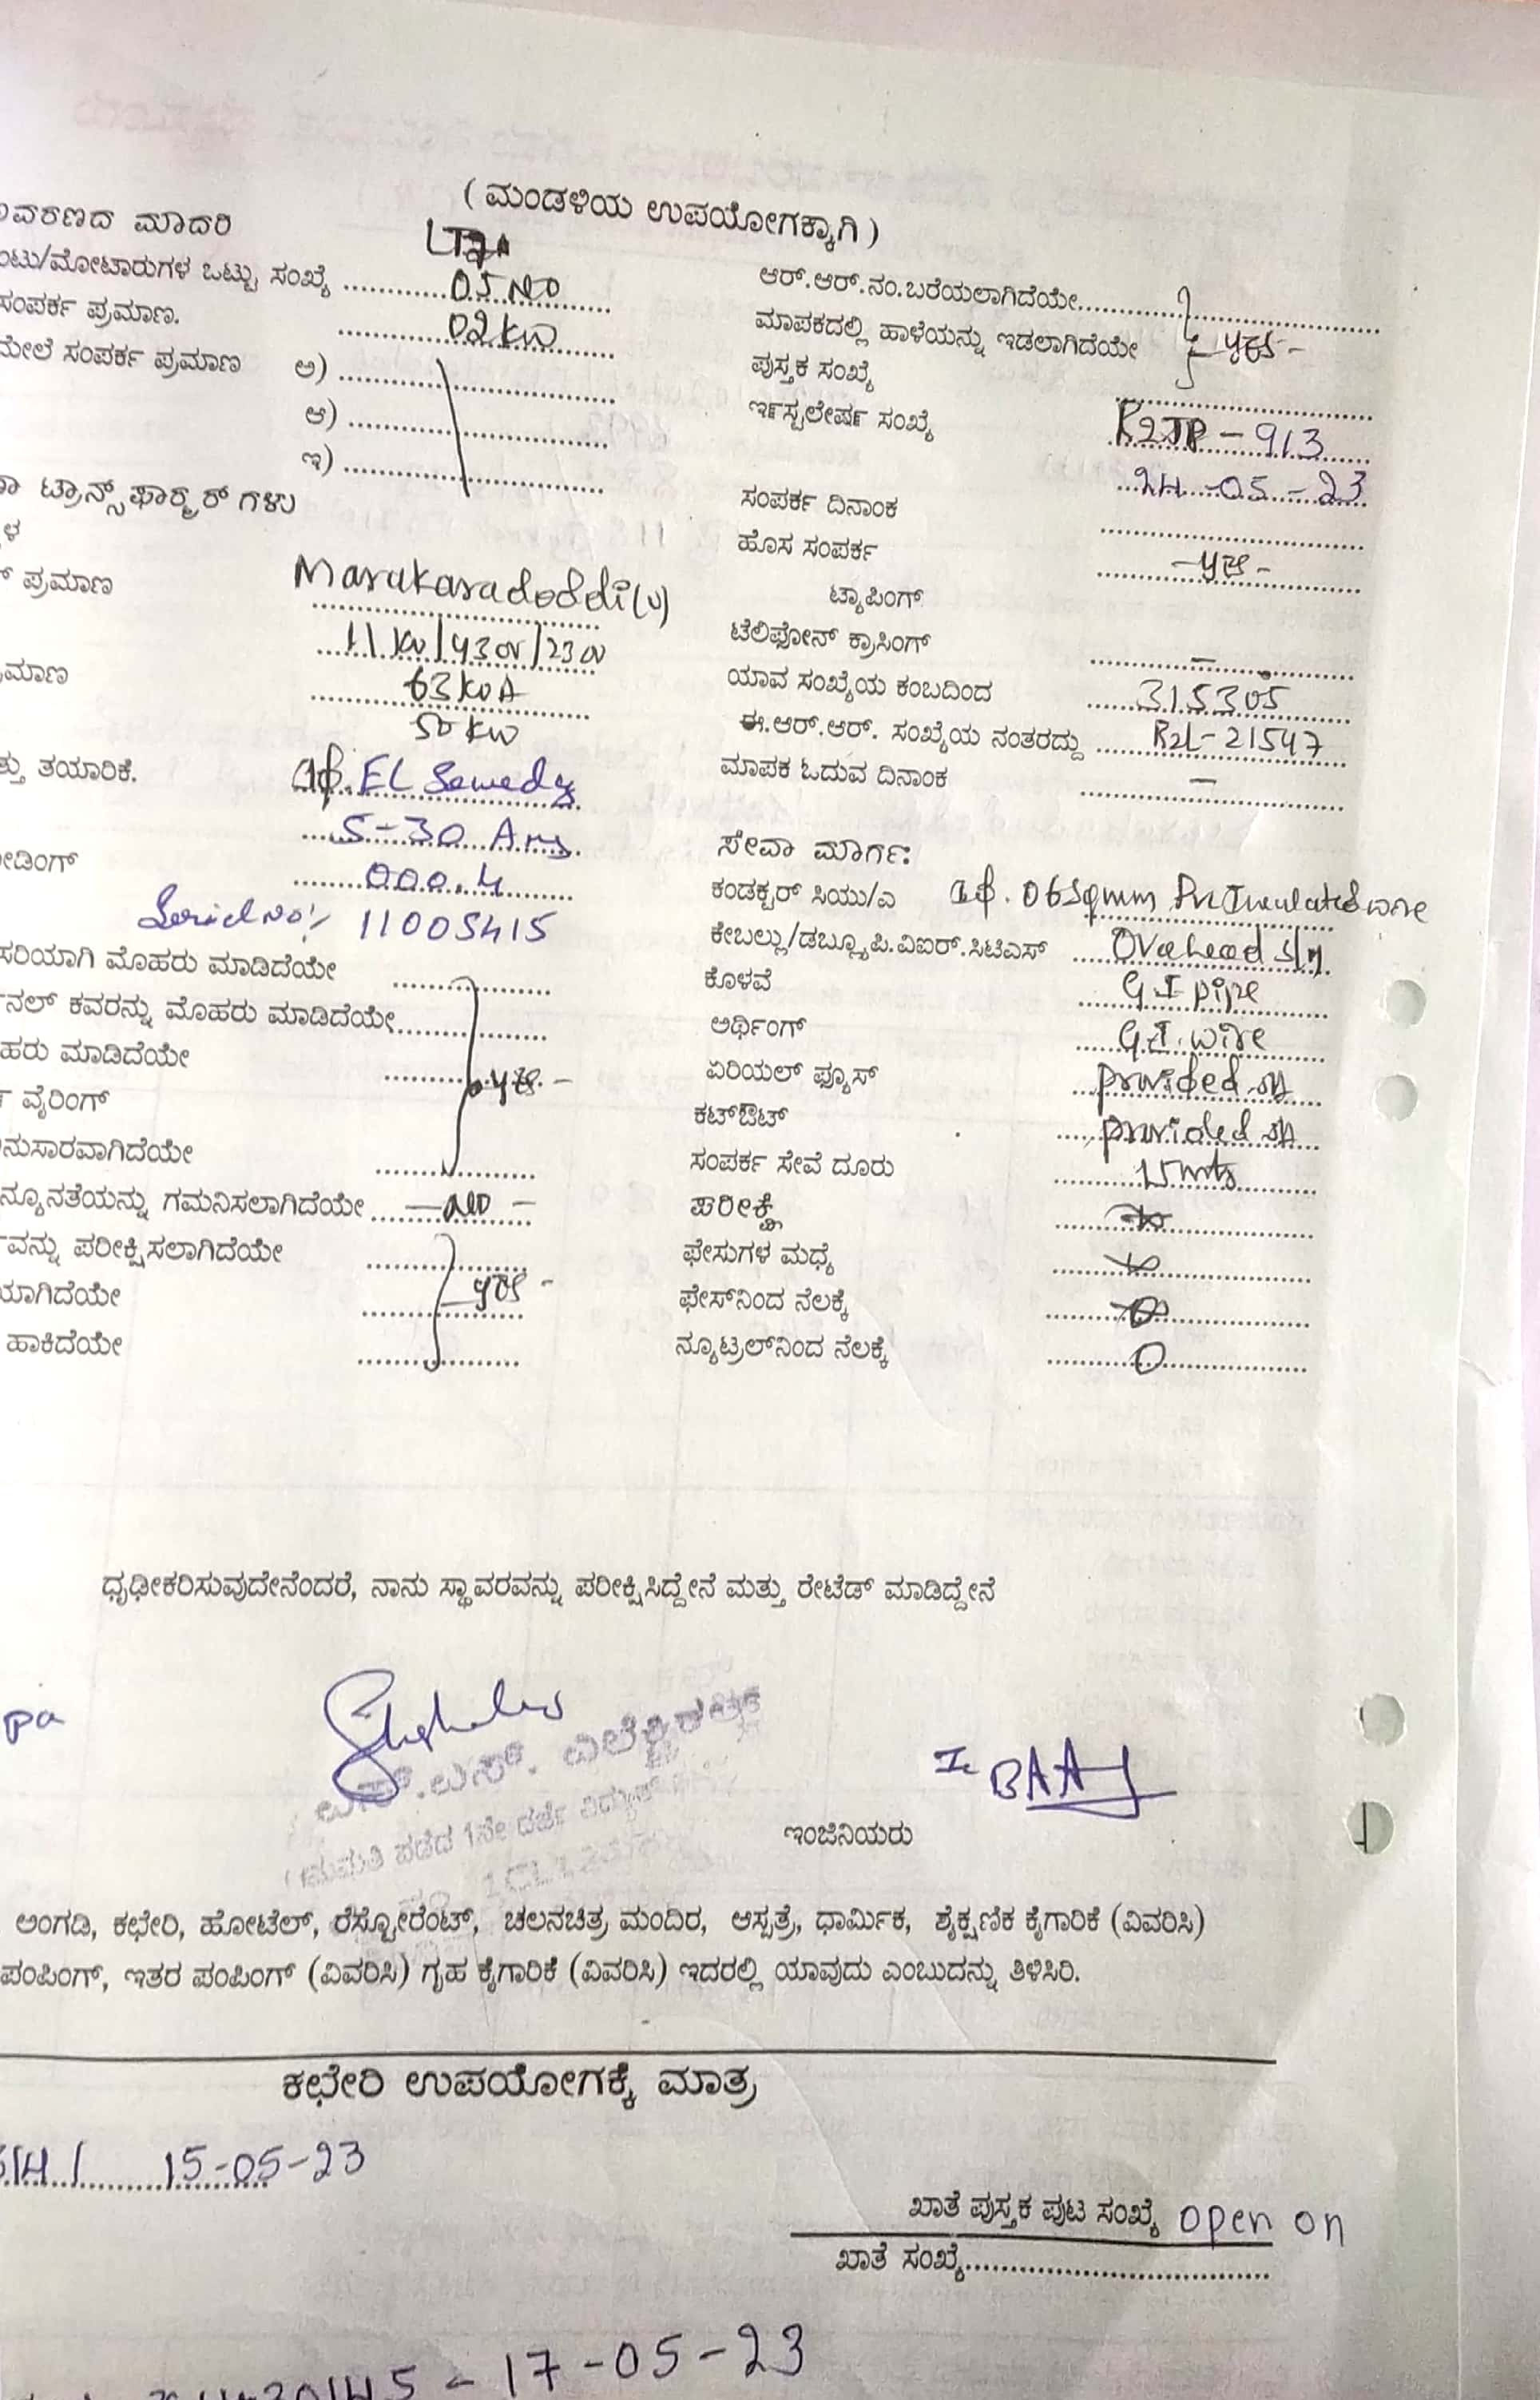 ( ಮಂಡಳಿಯ ಉಪಯೋಗಕ್ಕಾಗಿ )
ವರಣದ ಮಾದರಿ
ಂಟು/ಮೋಟಾರುಗಳ ಒಟ್ಟು ಸಂಖ್ಯೆ 05 NO
ಸಂಪರ್ಕ ಪ್ರಮಾಣ. 02 KW
ಮೇಲೆ ಸಂಪರ್ಕ ಪ್ರಮಾಣ ಅ)
ಆ)
ಇ)
ಟ್ರಾನ್ಸ್‌ಫಾರ್ಮರ್ ಗಳು
ಳ
ಪ್ರಮಾಣ Marakaradoddi(v)
11 KV/430V/230V
ಮಾಣ 63 KVA
50 KW
ತ್ತು ತಯಾರಿಕೆ. 1ф. EL Sewedy
5-30 Amp
ೀಡಿಂಗ್ 000.4
Serial No: 11005415
ಸರಿಯಾಗಿ ಮೊಹರು ಮಾಡಿದೆಯೇ
ನಲ್ ಕವರನ್ನು ಮೊಹರು ಮಾಡಿದೆಯೇ
ಹರು ಮಾಡಿದೆಯೇ yes -
ವೈರಿಂಗ್
ನುಸಾರವಾಗಿದೆಯೇ
ನ್ಯೂನತೆಯನ್ನು ಗಮನಿಸಲಾಗಿದೆಯೇ - NO -
ವನ್ನು ಪರೀಕ್ಷಿಸಲಾಗಿದೆಯೇ
ಯಾಗಿದೆಯೇ yes -
ಹಾಕಿದೆಯೇ
ಆರ್.ಆರ್.ನಂ.ಬರೆಯಲಾಗಿದೆಯೇ
ಮಾಪಕದಲ್ಲಿ ಹಾಳೆಯನ್ನು ಇಡಲಾಗಿದೆಯೇ - yes -
ಪುಸ್ತಕ ಸಂಖ್ಯೆ
ಇನ್‌ಸ್ಟಲೇಷನ್ ಸಂಖ್ಯೆ R2JP - 913
24 - 05 - 23
ಸಂಪರ್ಕ ದಿನಾಂಕ
ಹೊಸ ಸಂಪರ್ಕ - yes -
ಟ್ಯಾಪಿಂಗ್
ಟೆಲಿಫೋನ್ ಕ್ರಾಸಿಂಗ್ -
ಯಾವ ಸಂಖ್ಯೆಯ ಕಂಬದಿಂದ 315305
ಈ.ಆರ್.ಆರ್. ಸಂಖ್ಯೆಯ ನಂತರದ್ದು R2L-21547
ಮಾಪಕ ಓದುವ ದಿನಾಂಕ -
ಸೇವಾ ಮಾರ್ಗ:
ಕಂಡಕ್ಟರ್ ಸಿಯು/ಎ 1ф. 06 Sqmm
ಕೇಬಲ್ಲು/ಡಬ್ಲ್ಯೂಪಿ.ವಿಐರ್.ಸಿಟಿಎಸ್ Overhead
ಕೊಳವೆ G I pipe
ಅರ್ಥಿಂಗ್ G.I. wire
ಏರಿಯಲ್ ಫ್ಯೂಸ್ provided
ಕಟ್‌ಔಟ್ provided
ಸಂಪರ್ಕ ಸೇವೆ ದೂರು 15 mts
ಪರೀಕ್ಷೆ
ಫೇಸುಗಳ ಮಧ್ಯೆ
ಫೇಸ್‌ನಿಂದ ನೆಲಕ್ಕೆ
ನ್ಯೂಟ್ರಲ್‌ನಿಂದ ನೆಲಕ್ಕೆ 0
ಧೃಢೀಕರಿಸುವುದೇನೆಂದರೆ, ನಾನು ಸ್ಥಾವರವನ್ನು ಪರೀಕ್ಷಿಸಿದ್ದೇನೆ ಮತ್ತು ರೇಟೆಡ್ ಮಾಡಿದ್ದೇನೆ
pa
ಎಸ್.ಎಸ್. ಎಲೆಕ್ಟ್ರಿಕಲ್ಸ್
ಇಂಜಿನಿಯರು
ಅಂಗಡಿ, ಕಛೇರಿ, ಹೋಟೆಲ್, ರೆಸ್ಟೋರೆಂಟ್, ಚಲನಚಿತ್ರ ಮಂದಿರ, ಆಸ್ಪತ್ರೆ, ಧಾರ್ಮಿಕ, ಶೈಕ್ಷಣಿಕ ಕೈಗಾರಿಕೆ (ವಿವರಿಸಿ)
ಪಂಪಿಂಗ್, ಇತರ ಪಂಪಿಂಗ್ (ವಿವರಿಸಿ) ಗೃಹ ಕೈಗಾರಿಕೆ (ವಿವರಿಸಿ) ಇದರಲ್ಲಿ ಯಾವುದು ಎಂಬುದನ್ನು ತಿಳಿಸಿರಿ.
ಕಛೇರಿ ಉಪಯೋಗಕ್ಕೆ ಮಾತ್ರ
15-05-23
ಖಾತೆ ಪುಸ್ತಕ ಪುಟ ಸಂಖ್ಯೆ open on
ಖಾತೆ ಸಂಖ್ಯೆ
- 17-05-23